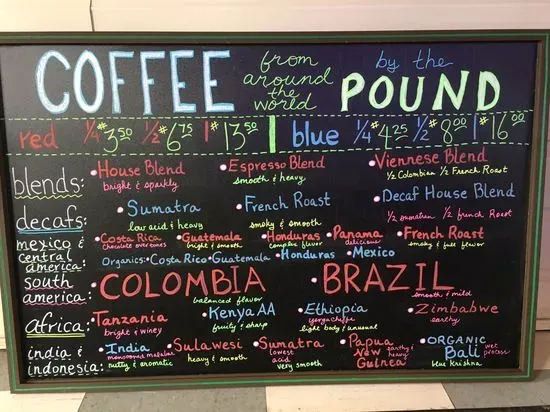 COFFEE from around the world by the POUND
red 1/4# $3.50 1/2# $6.75 1# $13.50 blue 1/4# $4.25 1/2# $8.00 1# $16.00
blends: House Blend Espresso Blend Viennese Blend
bright & sparkly smooth & heavy 1/2 Colombian 1/2 French Roast
decafs: Sumatra French Roast Decaf House Blend
low acid & heavy smoky & smooth 1/2 sumatran 1/2 french Roast
mexico & central america: Costa Rica Guatemala Honduras Panama French Roast
chocolate overtones bright & smooth complex flavor delicious smoky & full flavor
Organics: Costa Rica Guatemala Honduras Mexico
south america: COLOMBIA BRAZIL
balanced flavor smooth & mild
africa: Tanzania Kenya AA Ethiopia Zimbabwe
bright & winey fruity & sharp yergacheffe earthy
light body & unusual
india & indonesia: India Sulawesi Sumatra Papua New Guinea ORGANIC Bali
monsooned malabar heavy & smooth lowest acid earthy & heavy wet process
nutty & aromatic very smooth blue Krishna